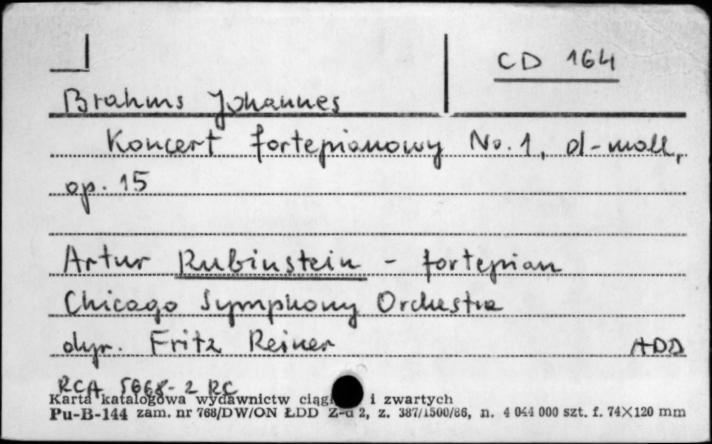 CD 164
Brahms Johannes
Koncert fortepianowy No. 1, d-moll,
op. 15
Artur Rubinstein - fortepian
Chicago Symphony Orchestra
dyr. Fritz Reiner ADD
RCA 5668-2 RC
Karta katalogowa wydawnictw i zwartych
Pu-B-144 zam. nr 768/DW/ON ŁDD 2, z. 387/1500/86, n. 4 044 000 szt. f. 74×120 mm